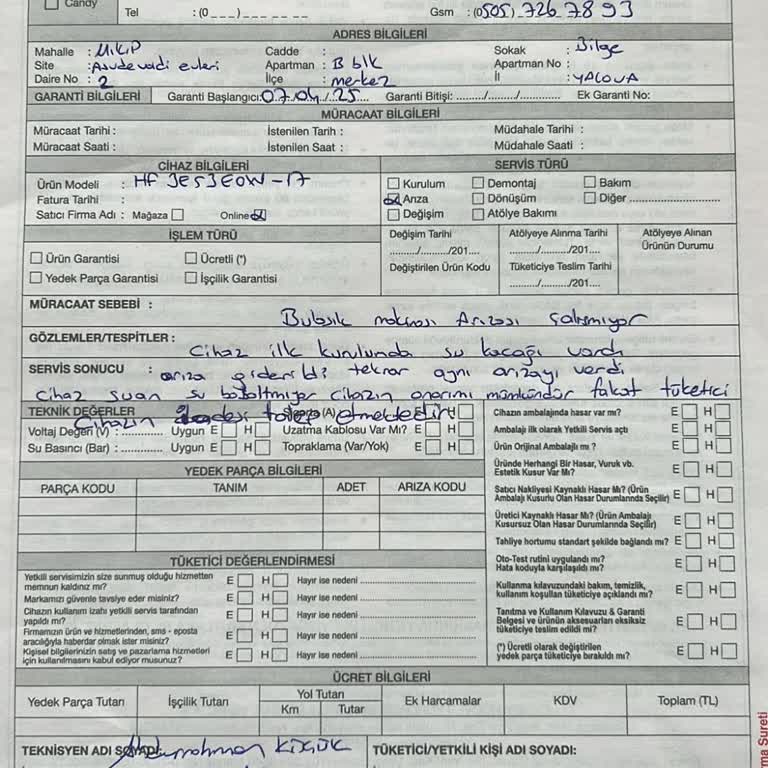 Candy
Tel : (0 _ _ _) _ _ _ _ _ Gsm : (0505) 726 7893
ADRES BİLGİLERİ
Mahalle : M.K.P Cadde : Sokak : Bilge
Site : Asudevadi evleri Apartman : B blk Apartman No :
Daire No : 2 İlçe : merkez İl : YALOVA
GARANTİ BİLGİLERİ Garanti Başlangıcı: 07.04./.25.... Garanti Bitişi: ......../......../......... Ek Garanti No:
MÜRACAAT BİLGİLERİ
Müracaat Tarihi : İstenilen Tarih : Müdahale Tarihi :
Müracaat Saati : İstenilen Saat : Müdahale Saati :
CİHAZ BİLGİLERİ SERVİS TÜRÜ
Ürün Modeli : HF 3E53E0W-17 Kurulum Demontaj Bakım
Fatura Tarihi : Arıza Dönüşüm Diğer ............................
Satıcı Firma Adı : Mağaza Online Değişim Atölye Bakımı
İŞLEM TÜRÜ Değişim Tarihi Atölyeye Alınma Tarihi Atölyeye Alınan Ürünün Durumu
......../......../201.... ......../......../201....
Ürün Garantisi Ücretli (*) Değiştirilen Ürün Kodu Tüketiciye Teslim Tarihi
Yedek Parça Garantisi İşçilik Garantisi ......../......../201....
MÜRACAAT SEBEBİ : Bulaşık makinası Arızası çalışmıyor
GÖZLEMLER/TESPİTLER : cihaz ilk kurulumda su kaçağı vardı
SERVİS SONUCU : arıza giderildi tekrar aynı arızayı verdi
cihaz şuan su boşaltmıyor cihazın onarımı mümkündür fakat tüketici
cihazın iadesi talep etmektedir
TEKNİK DEĞERLER (A) H
Voltaj Değeri (V) : ............ Uygun E H Uzatma Kablosu Var Mı? E H
Su Basıncı (Bar) : ............ Uygun E H Topraklama (Var/Yok) E H
Cihazın ambalajında hasar var mı? E H
Ambalajı ilk olarak Yetkili Servis açtı E H
Ürün Orijinal Ambalajlı mı ? E H
Üründe Herhangi Bir Hasar, Vuruk vb.
Estetik Kusur Var Mı? E H
Satıcı Nakliyesi Kaynaklı Hasar Mı? (Ürün
Ambalajı Kusurlu Olan Hasar Durumlarında Seçilir) E H
Üretici Kaynaklı Hasar Mı? (Ürün Ambalajı
Kusursuz Olan Hasar Durumlarında Seçilir) E H
Tahliye hortumu standart şekilde bağlandı mı? E H
Oto-Test rutini uygulandı mı?
Hata koduyla karşılaşıldı mı? E H
Kullanma kılavuzundaki bakım, temizlik,
kullanım koşulları tüketiciye açıklandı mı? E H
Tanıtma ve Kullanım Kılavuzu & Garanti
Belgesi ve ürünün aksesuarları eksiksiz
tüketiciye teslim edildi mi? E H
(*) Ücretli olarak değiştirilen
yedek parça tüketiciye bırakıldı mı? E H
YEDEK PARÇA BİLGİLERİ
PARÇA KODU TANIM ADET ARIZA KODU
TÜKETİCİ DEĞERLENDİRMESİ
Yetkili servisimizin size sunmuş olduğu hizmetten
memnun kaldınız mı? E H Hayır ise nedeni ............................
Markamızı güvenle tavsiye eder misiniz? E H Hayır ise nedeni ............................
Cihazın kullanım izahı yetkili servis tarafından
yapıldı mı? E H Hayır ise nedeni ............................
Firmamızın ürün ve hizmetlerinden, sms - eposta
aracılığıyla haberdar olmak ister misiniz? E H Hayır ise nedeni ............................
Kişisel bilgilerinizin satış ve pazarlama hizmetleri
için kullanılmasını kabul ediyor musunuz? E H Hayır ise nedeni ............................
ÜCRET BİLGİLERİ
Yedek Parça Tutarı İşçilik Tutarı Yol Tutarı Ek Harcamalar KDV Toplam (TL)
Km Tutar
TEKNİSYEN ADI SOYADI: Abdurrahman KÜÇÜK TÜKETİCİ/YETKİLİ KİŞİ ADI SOYADI:
rma Sureti